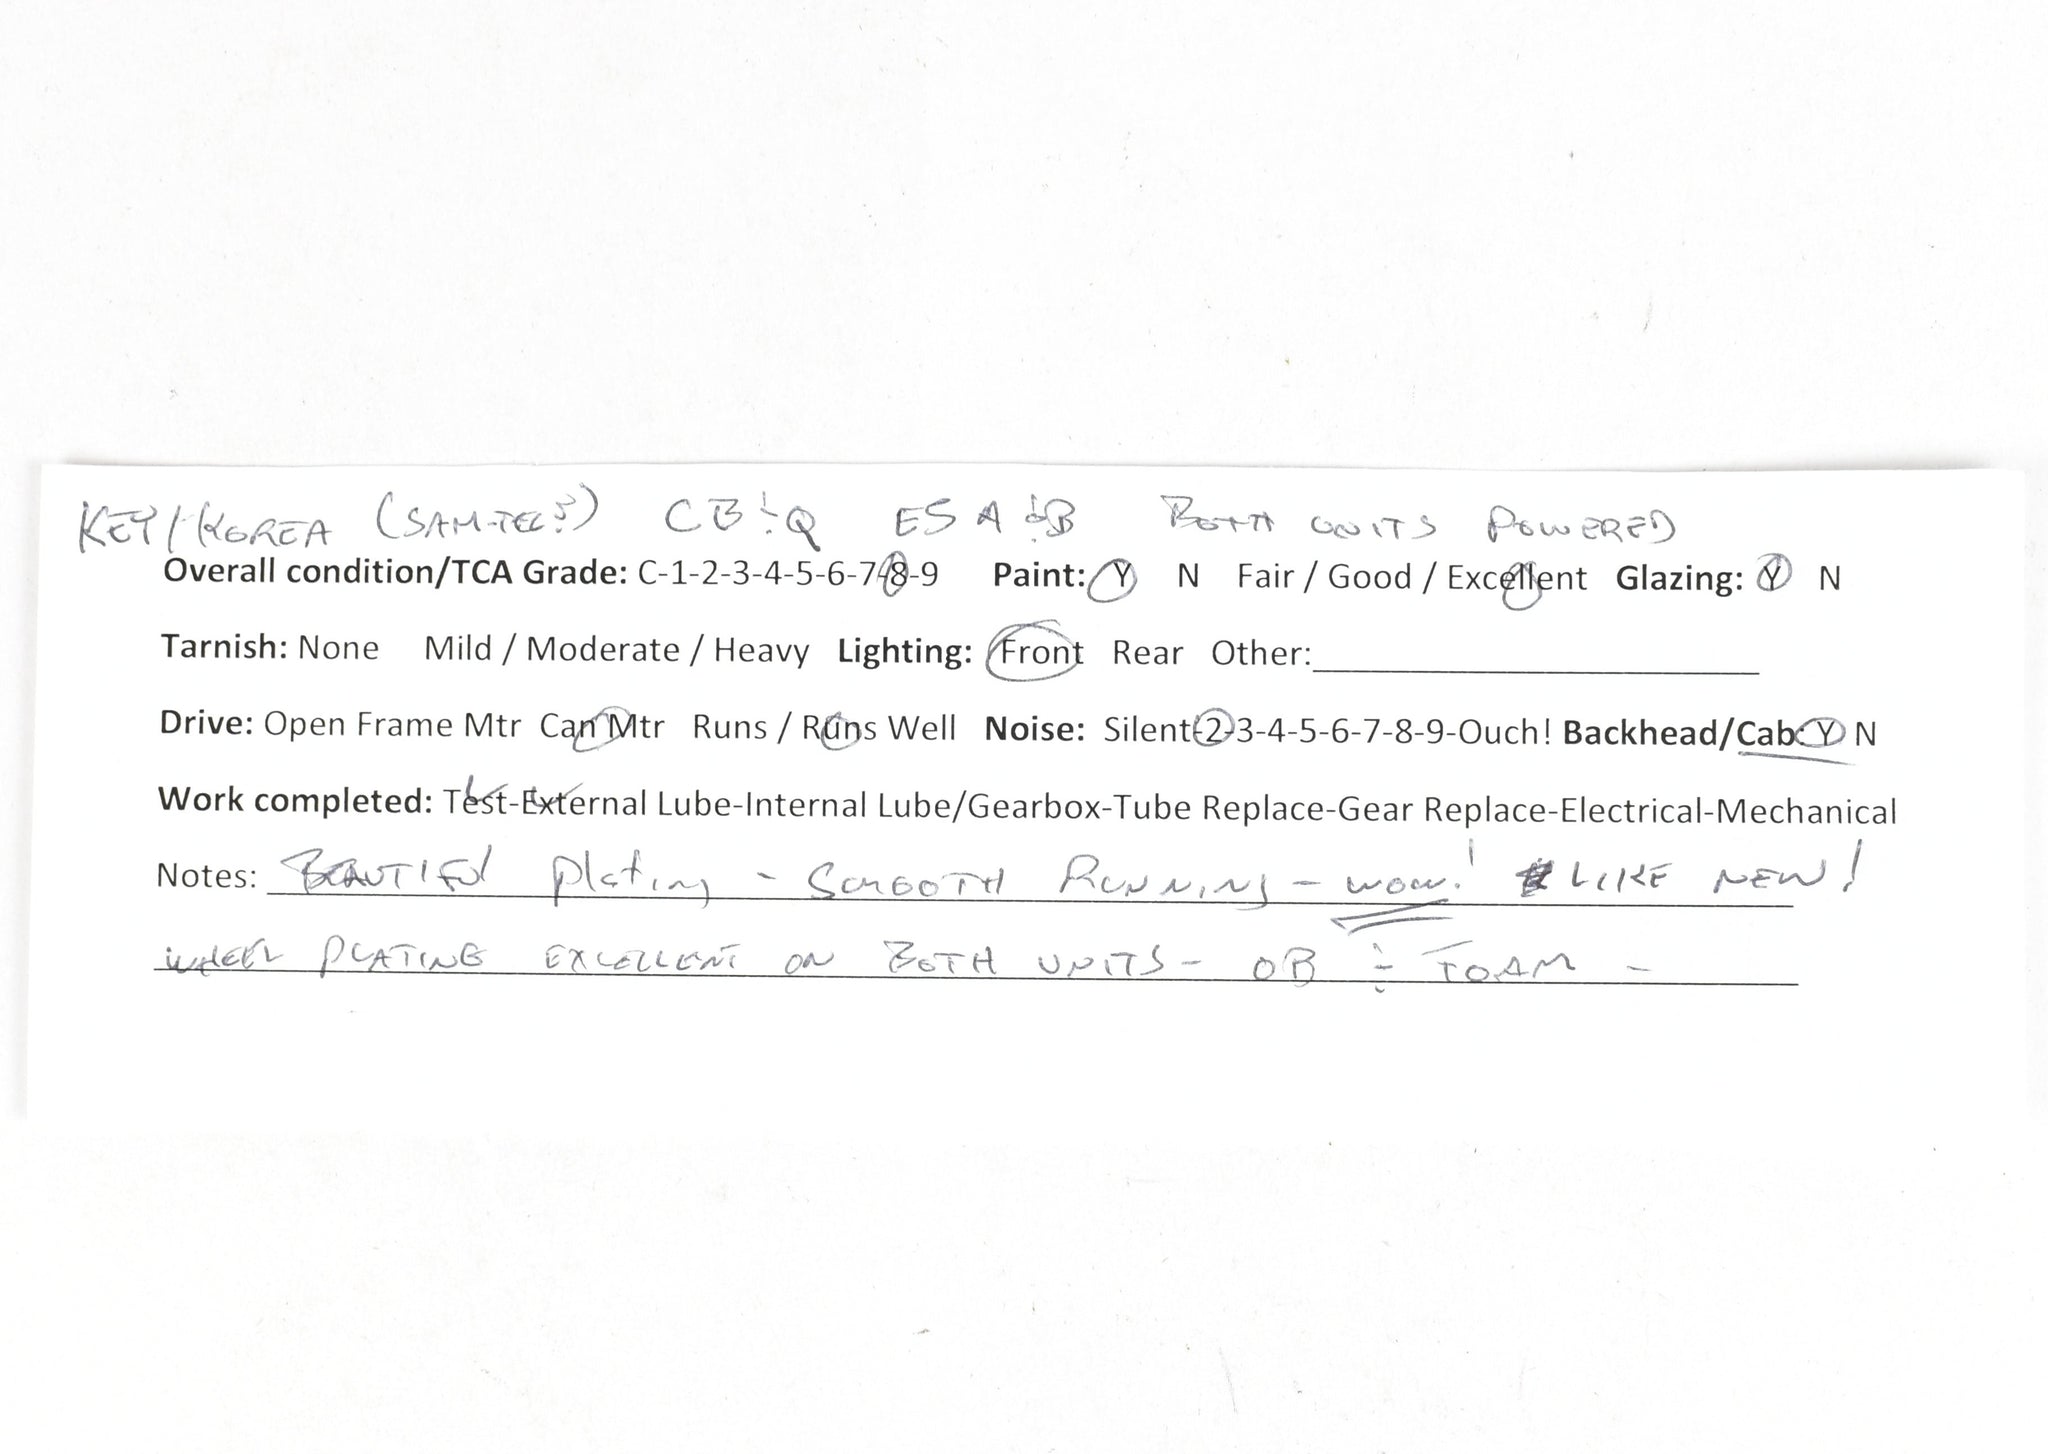 KEY/KOREA (SAMTEC?) CB&Q E5 A&B BOTH UNITS POWERED
Overall condition/TCA Grade: C-1-2-3-4-5-6-7-8-9 Paint: Y N Fair / Good / Excellent Glazing: Y N
Tarnish: None Mild / Moderate / Heavy Lighting: Front Rear Other:
Drive: Open Frame Mtr Can Mtr Runs / Runs Well Noise: Silent-2-3-4-5-6-7-8-9-Ouch! Backhead/Cab: Y N
Work completed: Test-External Lube-Internal Lube/Gearbox-Tube Replace-Gear Replace-Electrical-Mechanical
Notes: BEAUTIFUL Plating - SMOOTH RUNNING - WOW! LIKE NEW!
WHEEL PLATING EXCELLENT ON BOTH UNITS - OB & FOAM -